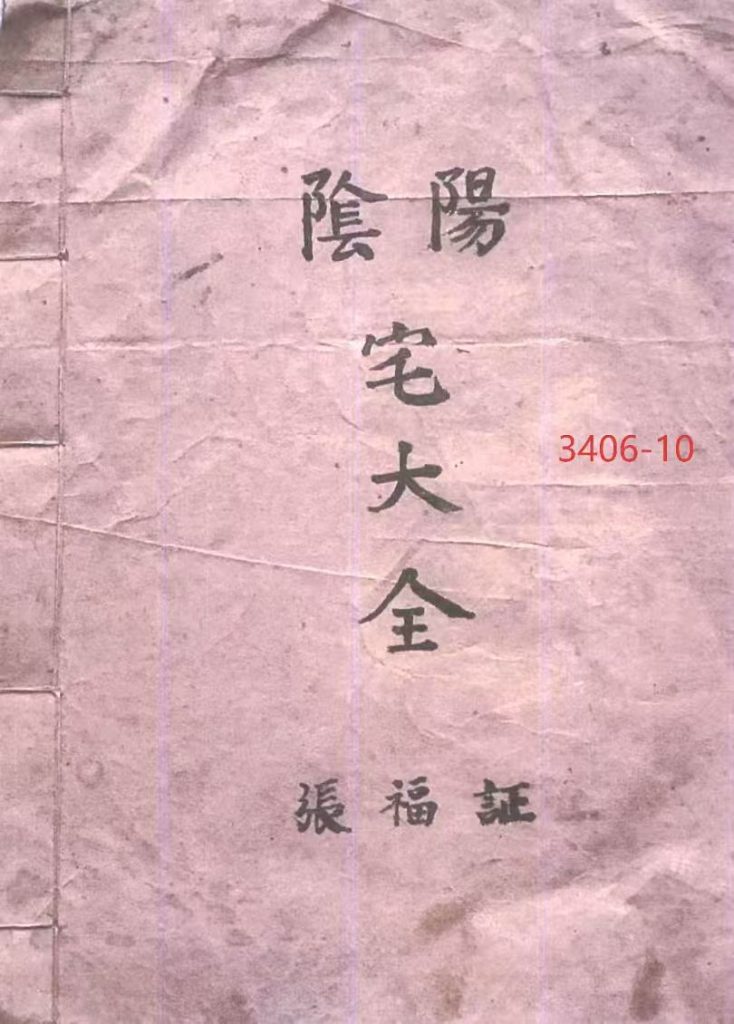 陰陽
宅
大
3406-10
全
張福証